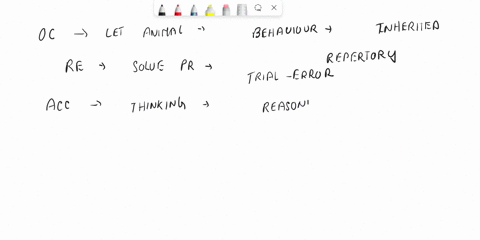 OC → LET ANIMAL → BEHAVIOUR → INHERITED
REPERTORY
RE → SOLVE PR → TRIAL-ERROR
ACC → THINKING → REASONI